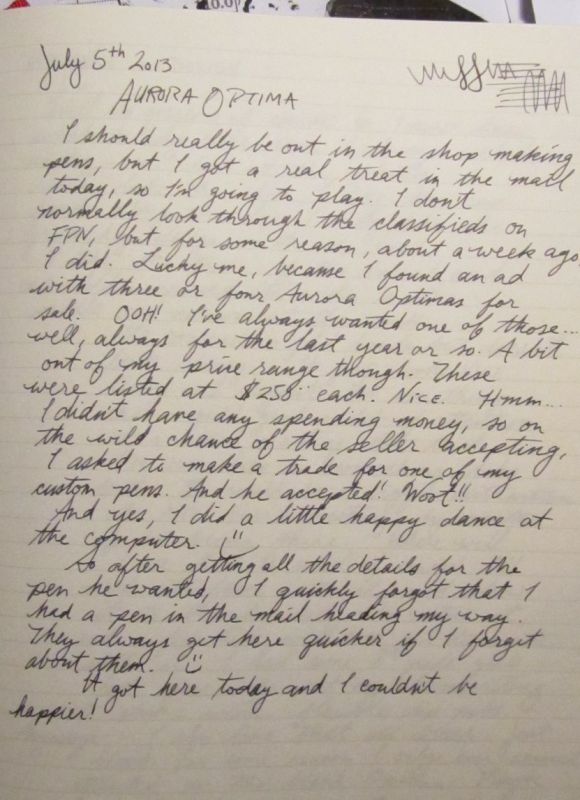 July 5th 2013
AURORA OPTIMA
I should really be out in the shop making
pens, but I got a real treat in the mail
today, so I'm going to play. I don't
normally look through the classifieds on
FPN, but for some reason, about a week ago
I did. Lucky me, because I found an ad
with three or four Aurora Optimas for
sale. OOH! I've always wanted one of those...
well, always for the last year or so. A bit
out of my price range though. These
were listed at $258 each. Nice. Hmm...
I didn't have any spending money, so on
the wild chance of the seller accepting,
I asked to make a trade for one of my
custom pens. And he accepted! Woot!!
And yes, I did a little happy dance at
the computer.
So after getting all the details for the
pen he wanted, I quickly forgot that I
had a pen in the mail heading my way.
They always get here quicker if I forget
about them.
It got here today and I couldn't be
happier!